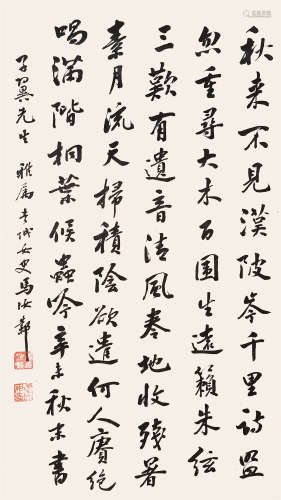 秋来不見渼陂岑千里詩盟
忽重尋大木百圍生遠籟朱弦
三歎有遺音清風卷地收殘暑
素月流天掃積陰欲遣何人賡絕
唱滿階桐葉候蟲吟辛未秋末書
子翼先生 雅屬 書城女史馬汝鄴